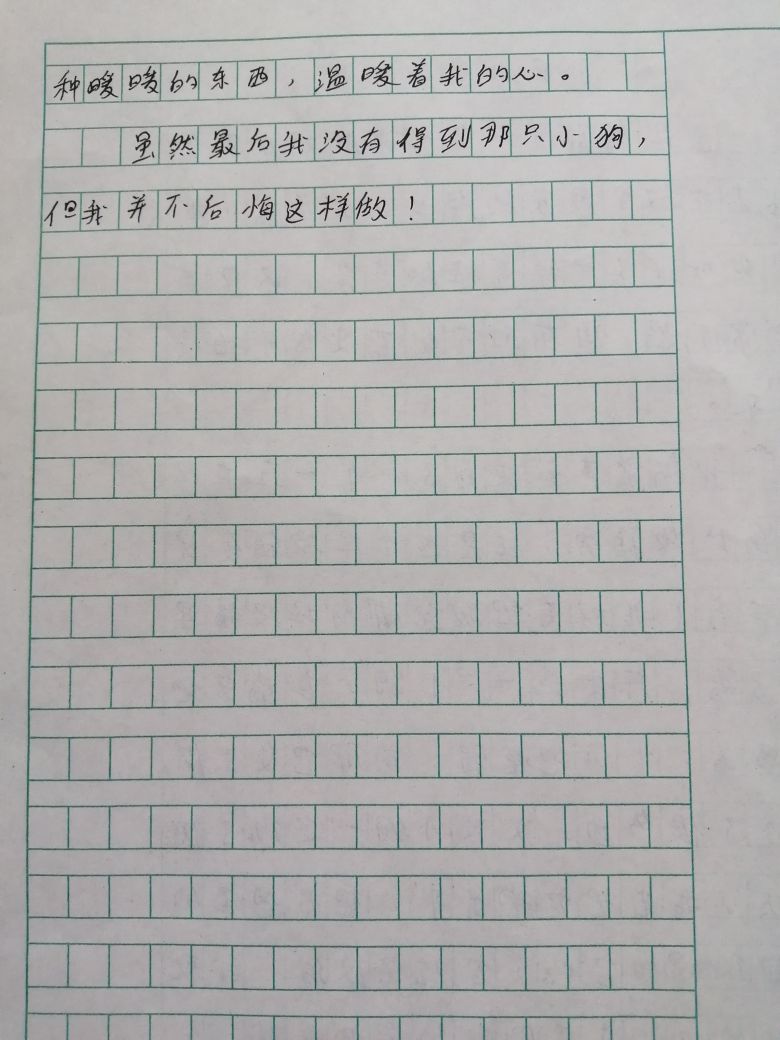 种暖暖的东西，温暖着我的心。
虽然最后我没有得到那只小狗，
但我并不后悔这样做！